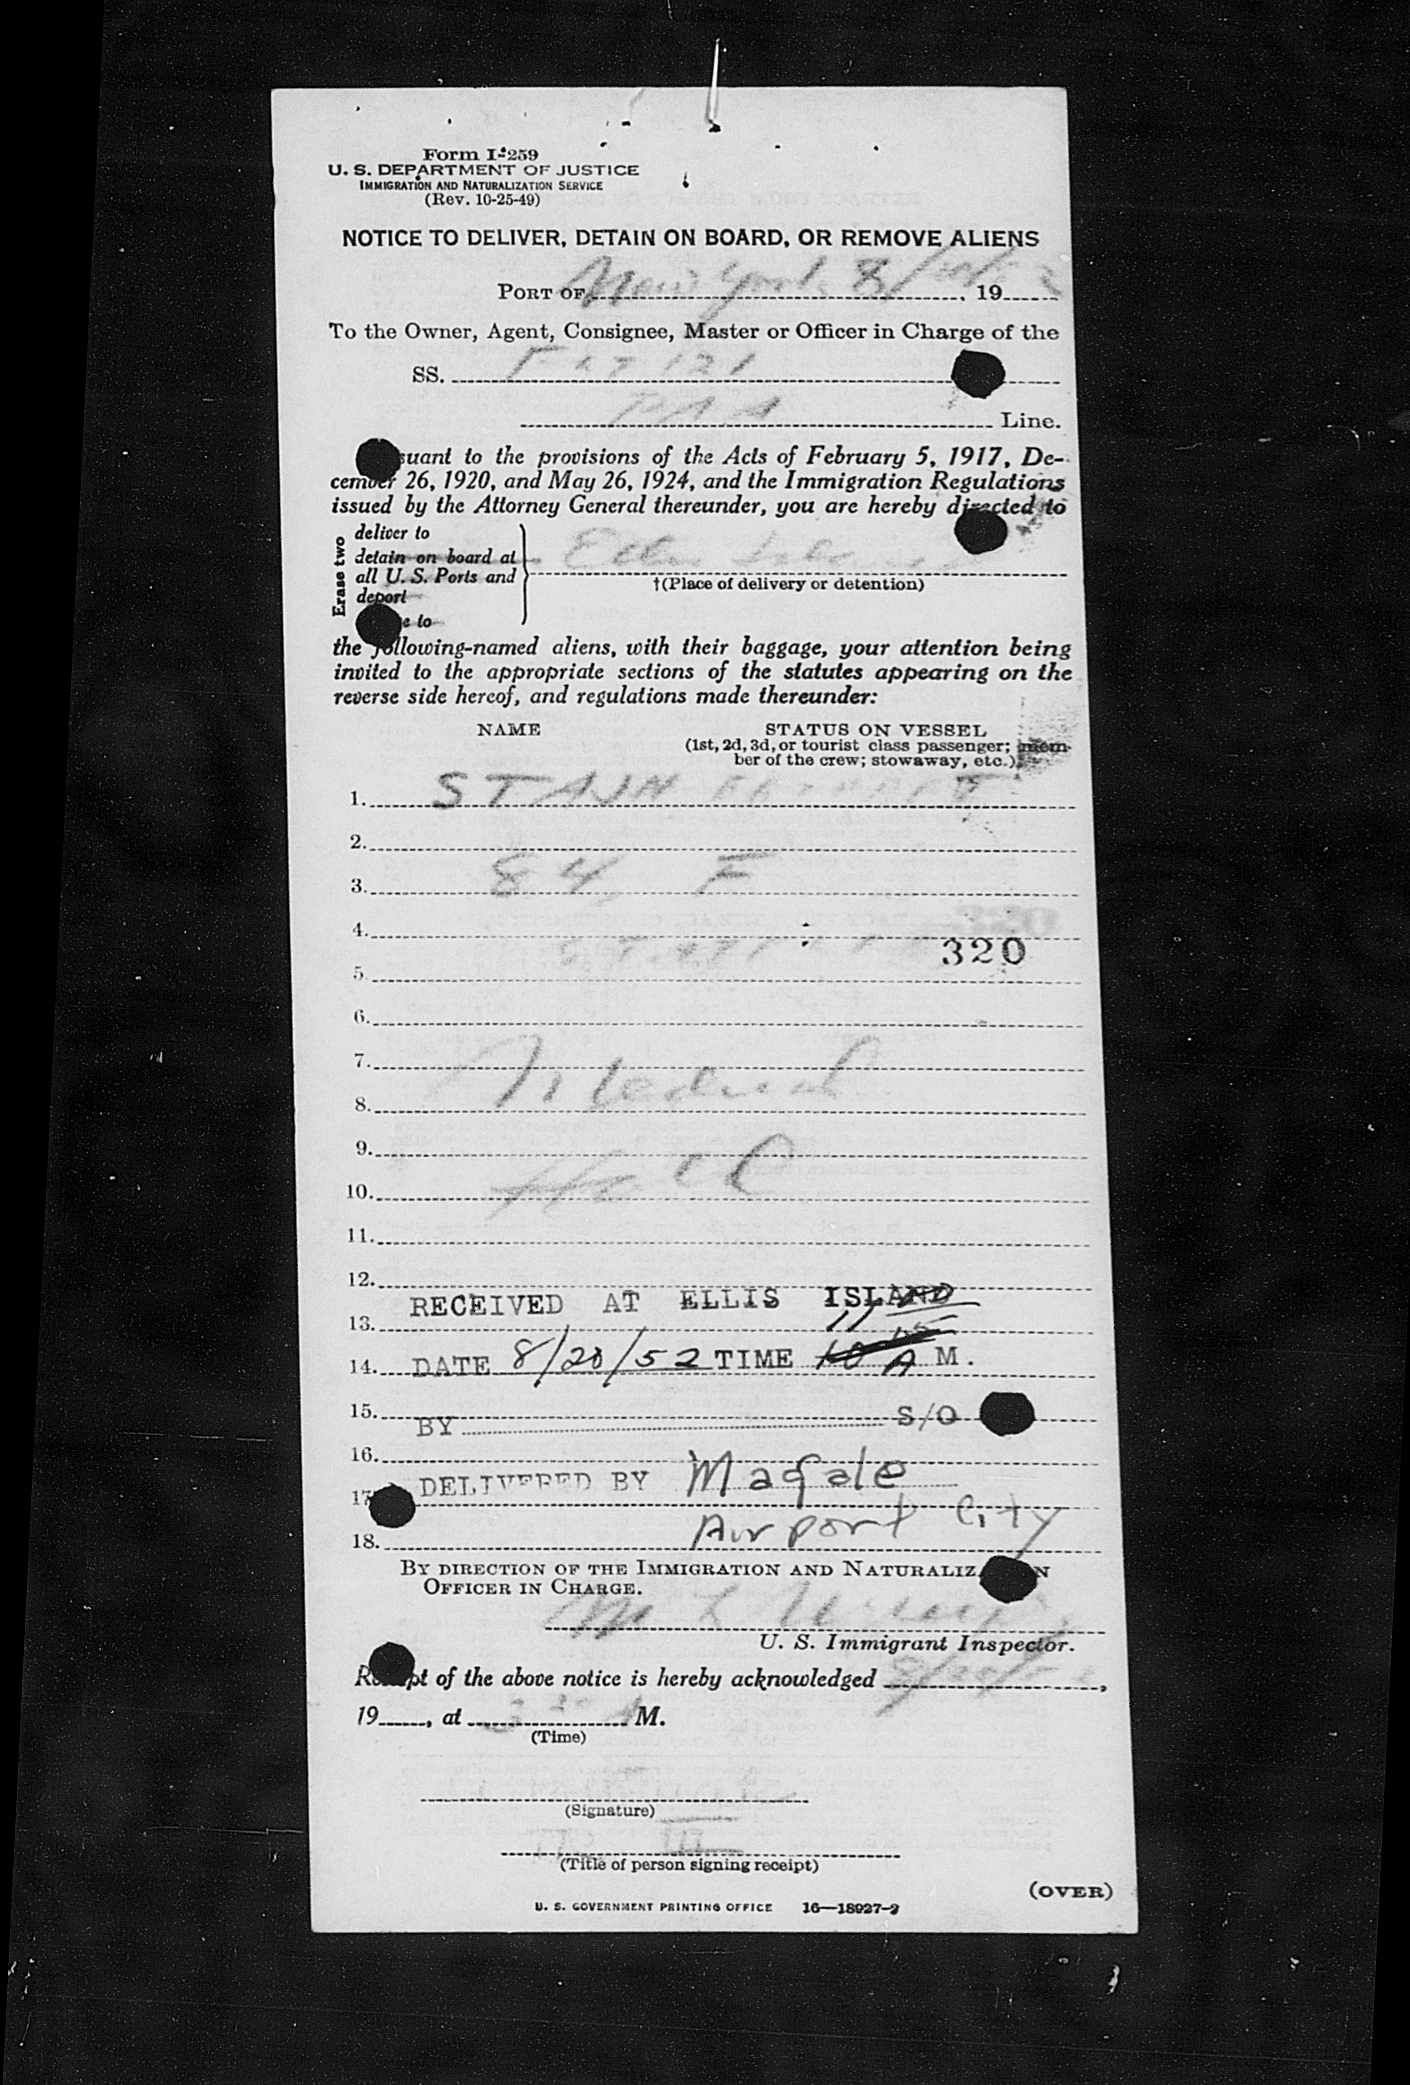 Form I-259
U. S. DEPARTMENT OF JUSTICE
IMMIGRATION AND NATURALIZATION SERVICE
(Rev. 10-25-49)
NOTICE TO DELIVER, DETAIN ON BOARD, OR REMOVE ALIENS
PORT OF New York 8/ , 19
To the Owner, Agent, Consignee, Master or Officer in Charge of the
SS. FLT 121
PAA Line.
suant to the provisions of the Acts of February 5, 1917, De-
cember 26, 1920, and May 26, 1924, and the Immigration Regulations
issued by the Attorney General thereunder, you are hereby directed to
Erase two
deliver to
detain on board at
all U. S. Ports and
deport
e to
Ellis Island
†(Place of delivery or detention)
the following-named aliens, with their baggage, your attention being
invited to the appropriate sections of the statutes appearing on the
reverse side hereof, and regulations made thereunder:
NAME STATUS ON VESSEL
(1st, 2d, 3d, or tourist class passenger; mem-
ber of the crew; stowaway, etc.)
1. STAJN
2.
3. 84, F
4.
320
5.
6.
7.
8. Medical
9.
10. Hold
11.
12.
RECEIVED AT ELLIS ISLAND
13. 11
14. DATE 8/20/52 TIME 10 A M.
15. BY S/O
16.
17 DELIVERED BY Magale
18. Airport City
BY DIRECTION OF THE IMMIGRATION AND NATURALIZ N
OFFICER IN CHARGE.
M L
U. S. Immigrant Inspector.
Receipt of the above notice is hereby acknowledged 8/20/52,
19 , at M.
(Time)
(Signature)
(Title of person signing receipt)
(OVER)
U. S. GOVERNMENT PRINTING OFFICE 16—18927-2